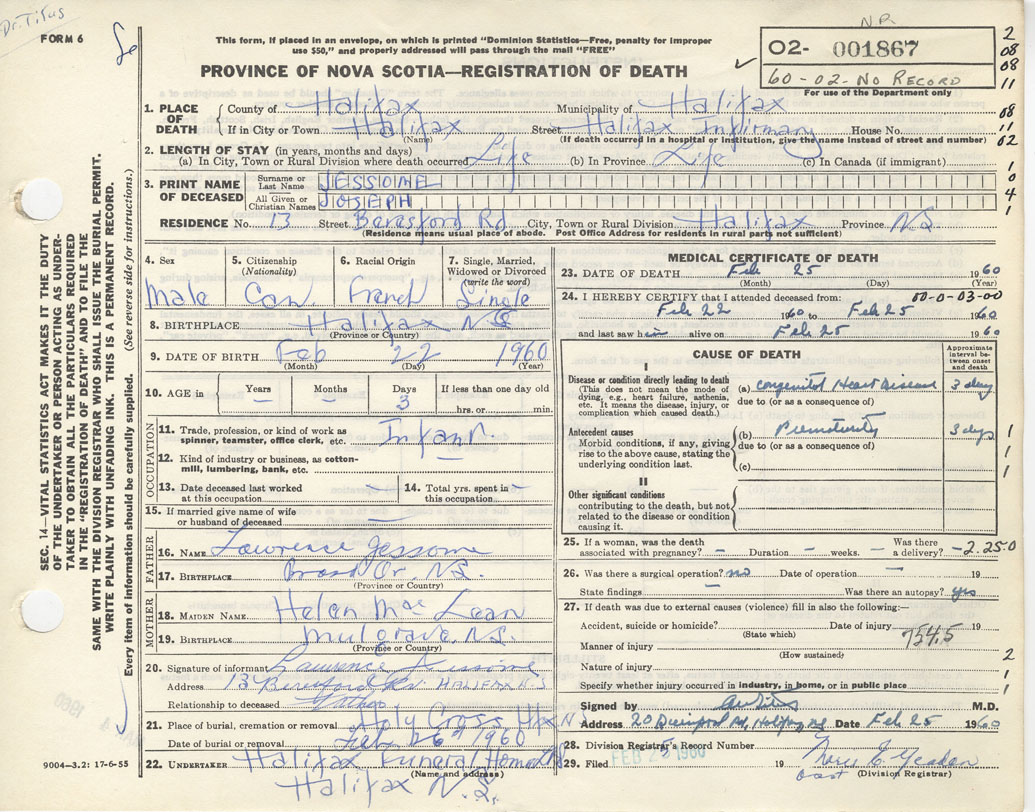 Dr. Titus
FORM 6
This form, if placed in an envelope, on which is printed "Dominion Statistics—Free, penalty for improper
use $50," and properly addressed will pass through the mail "FREE"
PROVINCE OF NOVA SCOTIA—REGISTRATION OF DEATH
N.R.
02- 001867
60-02-NO RECORD
For use of the Department only
2
08
08
11
08
11
02
1
0
4
1
SEC. 14—VITAL STATISTICS ACT MAKES IT THE DUTY
OF THE UNDERTAKER OR PERSON ACTING AS UNDER-
TAKER TO OBTAIN ALL THE PARTICULARS REQUIRED
IN THE "REGISTRATION OF DEATH" AND TO FILE THE
SAME WITH THE DIVISION REGISTRAR WHO SHALL ISSUE THE BURIAL PERMIT.
WRITE PLAINLY WITH UNFADING INK. THIS IS A PERMANENT RECORD.
Every item of information should be carefully supplied. (See reverse side for instructions.)
1. PLACE OF DEATH
County of Halifax Municipality of Halifax
If in City or Town Halifax Street Halifax Infirmary House No.
(Name) (If death occurred in a hospital or institution, give the name instead of street and number)
2. LENGTH OF STAY (in years, months and days)
(a) In City, Town or Rural Division where death occurred Life (b) In Province Life (c) In Canada (if immigrant)
3. PRINT NAME OF DECEASED
Surname or Last Name JESSOME
All Given or Christian Names JOSEPH
RESIDENCE No. 13 Street Beresford Rd City, Town or Rural Division Halifax Province N.S.
(Residence means usual place of abode. Post Office Address for residents in rural parts not sufficient)
4. Sex
Male
5. Citizenship (Nationality)
Can.
6. Racial Origin
French
7. Single, Married, Widowed or Divorced (write the word)
Single
8. BIRTHPLACE Halifax N.S.
(Province or Country)
9. DATE OF BIRTH Feb 22 1960
(Month) (Day) (Year)
10. AGE in Years — Months — Days 3 If less than one day old hrs. or min.
OCCUPATION
11. Trade, profession, or kind of work as spinner, teamster, office clerk, etc. Infant.
12. Kind of industry or business, as cotton-mill, lumbering, bank, etc. —
13. Date deceased last worked at this occupation —
14. Total yrs. spent in this occupation —
15. If married give name of wife or husband of deceased —
FATHER
16. NAME Lawrence Jessome
17. BIRTHPLACE Bras d'Or, N.S.
(Province or Country)
MOTHER
18. MAIDEN NAME Helen Mac Lean
19. BIRTHPLACE Mulgrave, N.S.
(Province or Country)
20. Signature of informant Lawrence Jessome
Address 13 Beresford Rd. HALIFAX N.S
Relationship to deceased Father
21. Place of burial, cremation or removal Holy Cross Hfx N
Date of burial or removal Feb 26th 1960
22. UNDERTAKER Halifax Funeral Home Ltd
(Name and address)
Halifax N.S.
9004-3.2: 17-6-55
MEDICAL CERTIFICATE OF DEATH
23. DATE OF DEATH Feb 25 1960
(Month) (Day) (Year)
24. I HEREBY CERTIFY that I attended deceased from: 00-0-03-00
Feb 22 1960 to Feb 25 1960
and last saw him alive on Feb 25 1960
CAUSE OF DEATH
Approximate interval between onset and death
I
Disease or condition directly leading to death
(This does not mean the mode of dying, e.g., heart failure, asthenia, etc. It means the disease, injury, or complication which caused death.)
(a) Congenital Heart Disease 3 days
due to (or as a consequence of)
Antecedent causes
Morbid conditions, if any, giving rise to the above cause, stating the underlying condition last.
(b) Prematurity 3 days
due to (or as a consequence of)
(c)
1
1
1
II
Other significant conditions
contributing to the death, but not related to the disease or condition causing it.
25. If a woman, was the death associated with pregnancy? — Duration — weeks. — Was there a delivery? — 2.250
26. Was there a surgical operation? no Date of operation — 19
State findings — Was there an autopsy? yes
27. If death was due to external causes (violence) fill in also the following:—
Accident, suicide or homicide? Date of injury 19
(State which)
7545
Manner of injury
(How sustained)
Nature of injury
2
1
1
Specify whether injury occurred in industry, in home, or in public place
Signed by M.D.
Address 20 Halifax, NS Date Feb 25 1960
28. Division Registrar's Record Number
29. Filed FEB 25 1960 19
(Division Registrar)